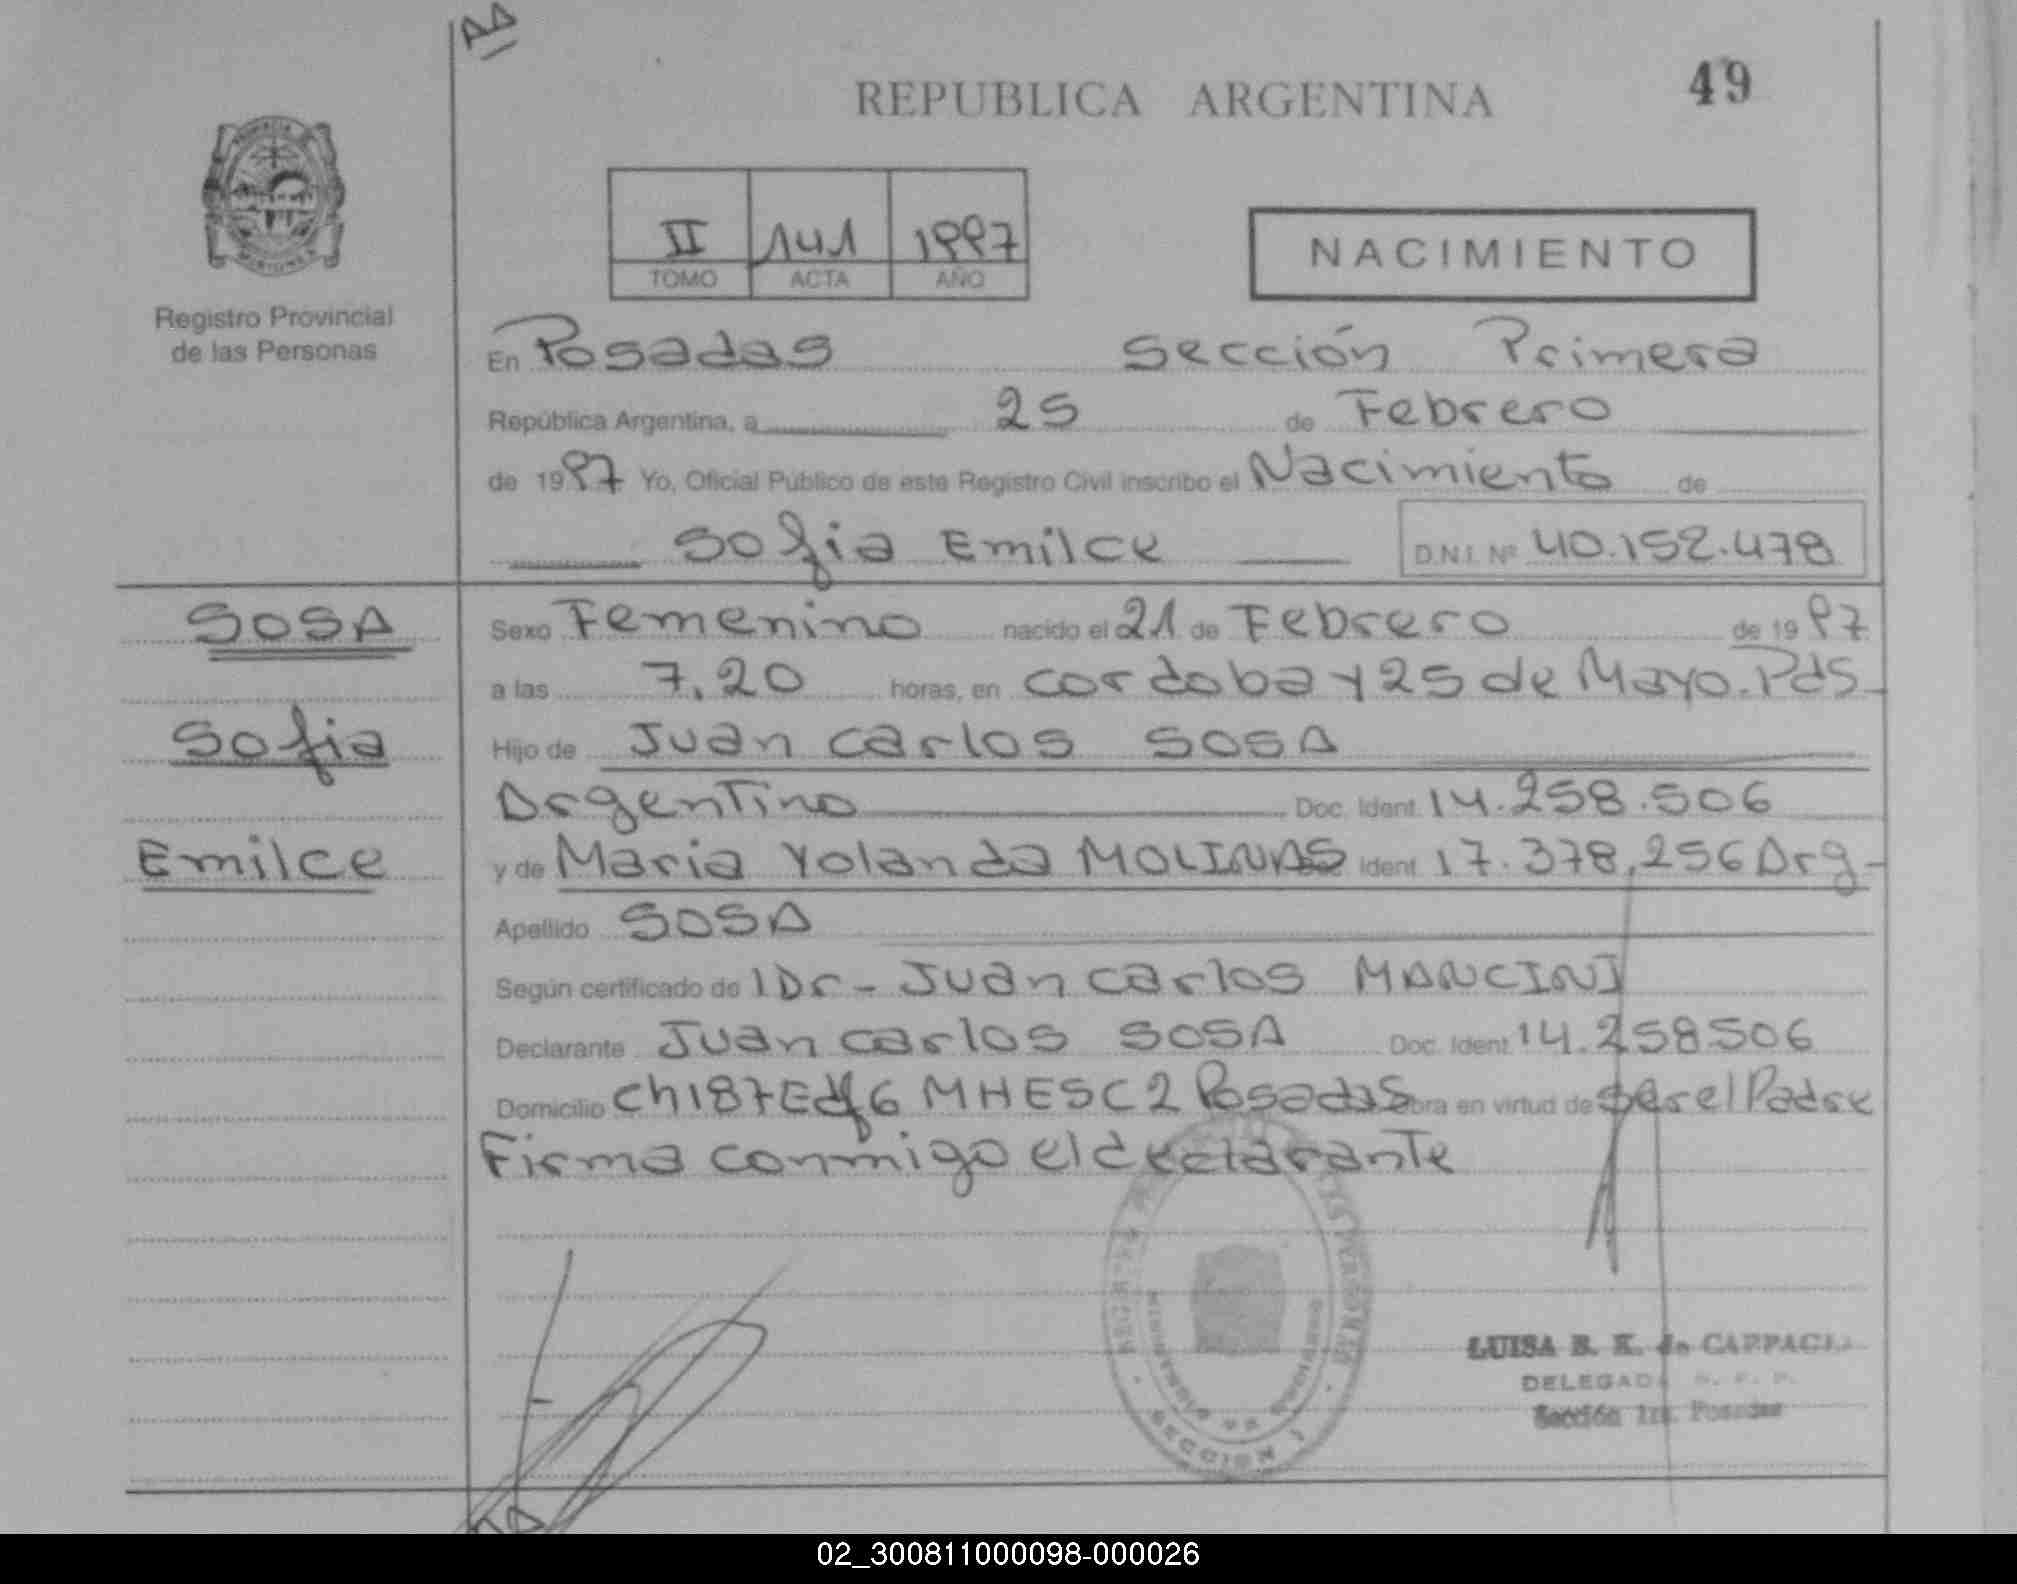 AA
REPUBLICA ARGENTINA
49
II 141 1997
TOMO ACTA AÑO
NACIMIENTO
Registro Provincial
de las Personas
En Posadas Sección Primera
República Argentina, a 25 de Febrero
de 1997 Yo, Oficial Público de este Registro Civil inscribo el Nacimiento de
Sofia Emilce D.N.I. Nº 40.152.478
SOSA
Sofia
Emilce
Sexo Femenino nacido el 21 de Febrero de 1997
a las 7,20 horas, en Cordoba y 25 de Mayo. Pds
Hijo de Juan Carlos SOSA
Argentino Doc. Ident. 14.258.506
y de Maria Yolanda MOLINAS Ident. 17.378,256 Arg-
Apellido SOSA
Según certificado de l Dr - Juan Carlos MANCINI
Declarante Juan Carlos SOSA Doc. Ident. 14.258.506
Domicilio Ch187 Edf6 MHESC2 Posadas Obra en virtud de ser el Padre
Firma conmigo el declarante
LUISA B. K. de
DELEGADA
Sección 1ra. Posadas
SECCION 1
02_300811000098-000026